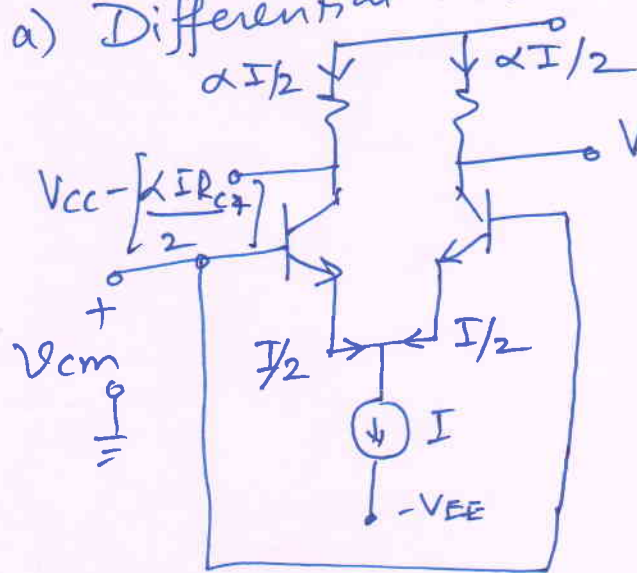 a) Differential
αI/2
αI/2
V
VCC-[αIRC/2]
+
Vcm
I/2
I/2
I
-VEE